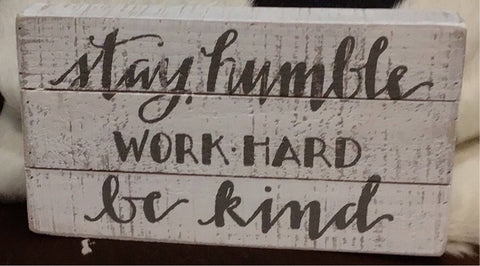 stay humble
WORK·HARD
be kind